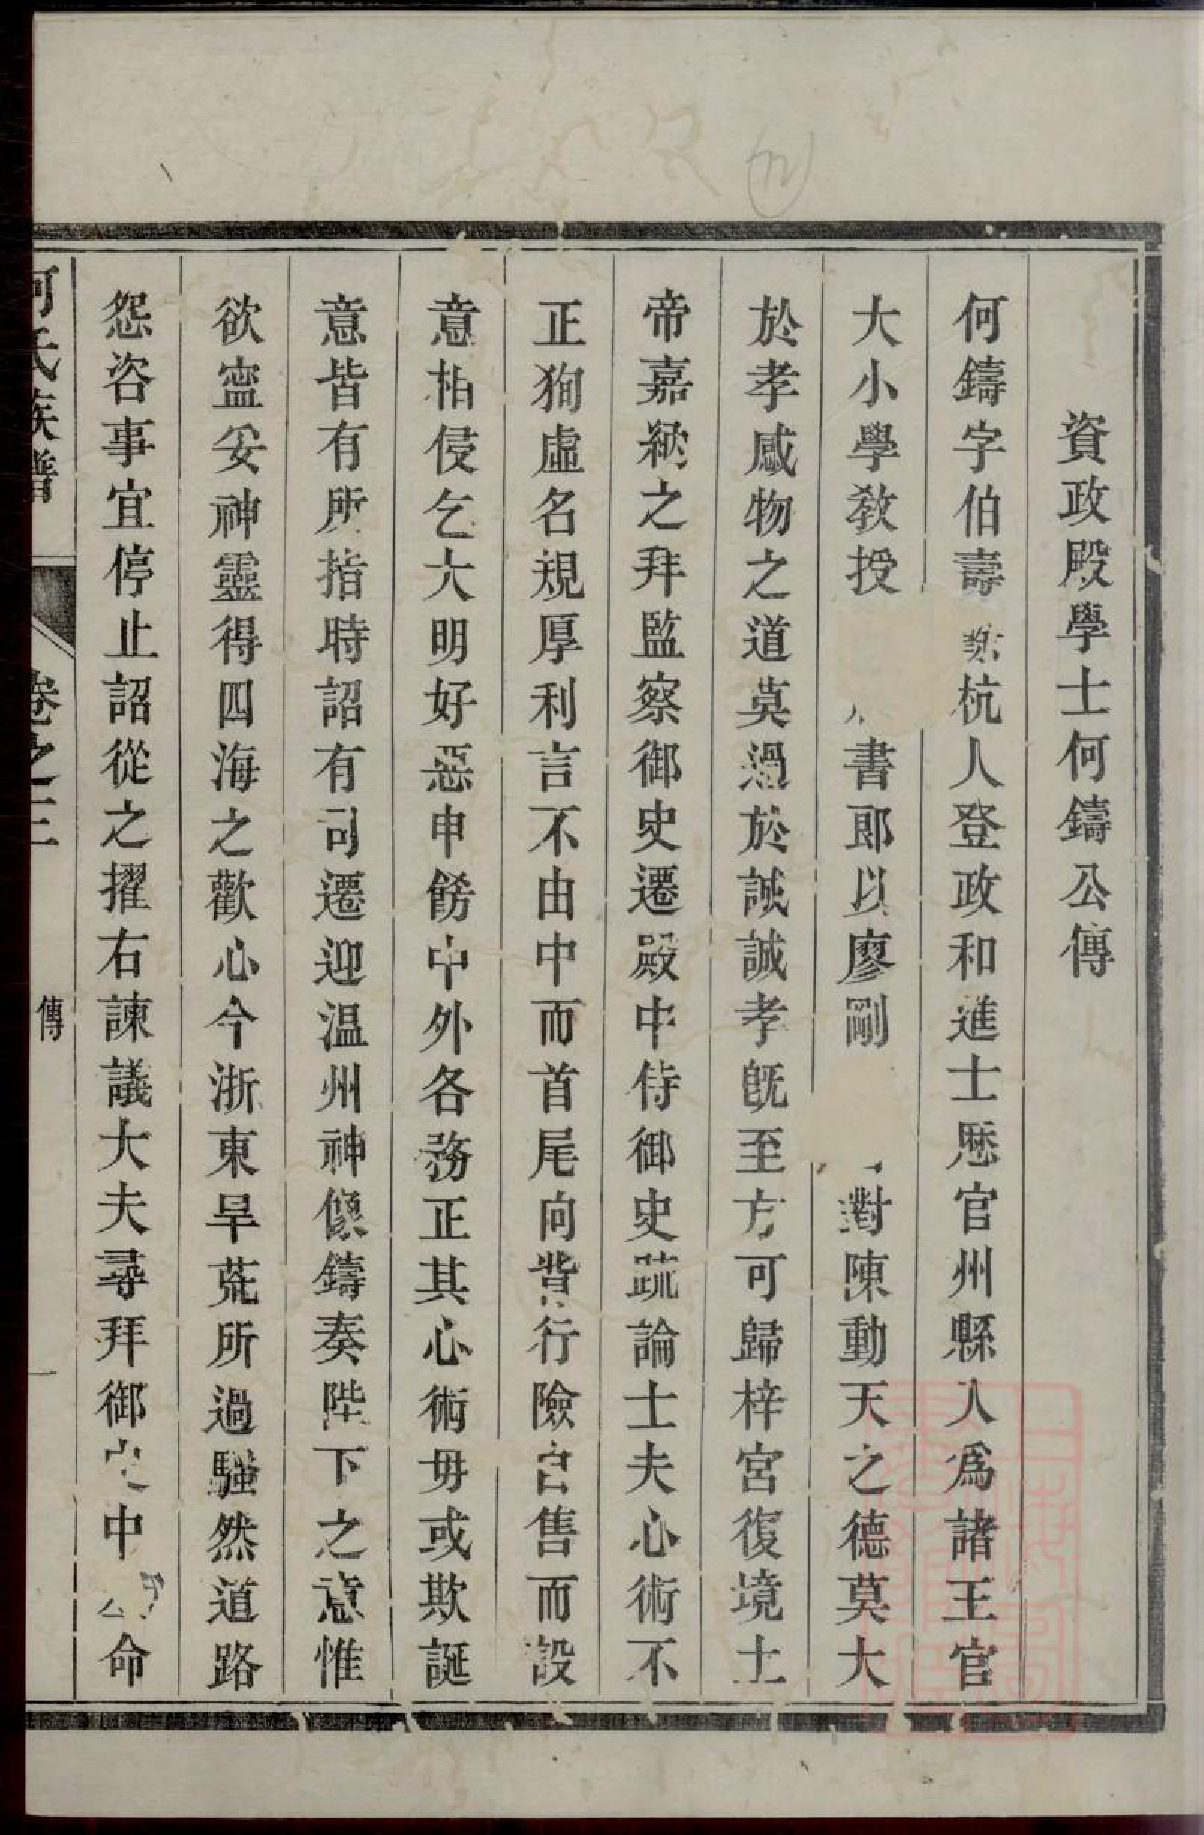 資政殿學士何鑄公傳
何鑄字伯壽 杭人登政和進士歷官州縣入爲諸王官
大小學教授 書郎以廖剛 對陳動天之德莫大
於孝感物之道莫過於誠誠孝旣至方可歸梓宮復境土
帝嘉納之拜監察御史遷殿中侍御史疏論士夫心術不
正狥虛名規厚利言不由中而首尾向背行險 售而設
意相侵乞大明好惡申餝中外各務正其心術毋或欺誕
意皆有所指時詔有司遷迎温州神像鑄奏陛下之意惟
欲寍妥神靈得四海之歡心今浙東旱荒所過騷然道路
怨咨事宜停止詔從之擢右諫議大夫尋拜御史中 命
何氏族譜 卷之三 傳